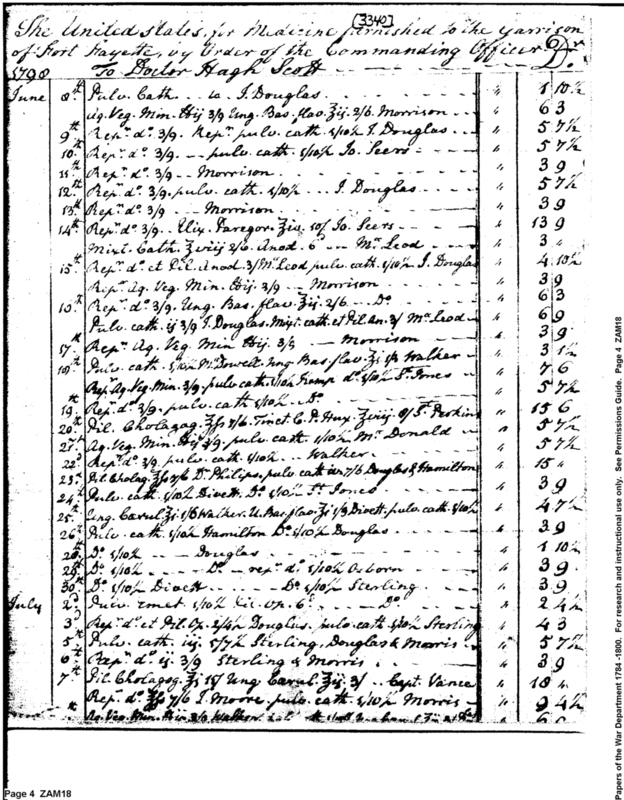 3340
The United States, for Medicine furnished to the garrison
of Fort Fayette, by Order of the Commanding Officer Dr.
1798 To Doctor Hugh Scott
June 8th Pulv Cath I. Douglas " 1 10½
Aq. Veg. Min. 3/9 Ung. Bas. flav. Zij 2/6 Morrison " 6 3
9th Repd. do. 3/9. Repd. pulv. cath 1/10½ I. Douglas " 5 7½
10th Repd. do. 3/9. pulv. cath 1/10½ Jo. Seers " 5 7½
11th Repd. do. 3/9 Morrison " 3 9
12th Repd. do. 3/9. pulv. cath 1/10½ I. Douglas " 5 7½
13th Repd. do. 3/9 Morrison " 3 9
14th Repd. do. 3/9. Elix. Paregor. 10/ Jo. Seers " 13 9
Mixt. Cath. 2/6 Anod. 6 McLeod " 3 "
15th Repd. do. et Pil. Anod. 3/ McLeod pulv. cath. 1/10½ I. Douglas " 4 10½
Repd. Aq. Veg. Min. 3/9 Morrison " 3 9
Repd. do. 3/9. Ung. Bas. flav. Zij 2/6 Do " 6 3
Pulv. cath. ij 3/9 I. Douglas. Mixt. cath. et Pil. An. 3/ McLeod " 6 9
17th Repd. Aq. Veg. Min 3/9 Morrison " 3 9
Pulv. cath 1/10½ McDowell Ung. Bas. flav. Walker " 3 1½
Repd. Aq. Veg. Min. 3/9. pulv. cath. 1/10½ do. 1/10½ Jones " 7 6
19th Repd. do. 3/9. pulv. cath 1/10½ Do " 5 7½
20th Pil. Cholagog. 7/6. Tinct. Perkins " 15 6
21st Aq. Veg. Min. 3/9. pulv. cath 1/10½ McDonald " 5 7½
22d Repd. do. 3/9. pulv. cath 1/10½ Walker " 5 7½
23d Pil. Cholag. 7/6 D. Philips, pulv. cath 7/6 Douglas & Hamilton " 15 "
24th Pulv. cath 1/10½ Divett. Do. 1/10½ Jones " 3 9
25th Ung. Walker. Divett. pulv. cath. 1/10½ " 4 7½
26th Pulv. cath. 1/10½ Hamilton Do. 1/10½ Douglas " 3 9
Do. 1/10½ Douglas " 1 10½
Do. 1/10½ Do repd. do. 1/10½ Osborn " 3 9
30th Do. 1/10½ Divett Do. 1/10½ Sterling " 3 9
July 2d Pulv. emet 1/10½ Do " 2 4½
3d Repd. do. et Pil. Op. 2/4½ Douglas. pulv. cath 1/10½ Sterling " 4 3
5th Pulv. cath. iij 5/7½ Sterling, Douglas & Morris " 5 7½
6th Repd. do. ij 3/9 Sterling & Morris " 3 9
7th Pil. Cholagog. 15/ Ung. 3/ Capt. Vance " 18 "
Repd. do. 7/6 I. Moore pulv. cath. 1/10½ Morris " 9 4½
Aq. Veg. Min. 3/9 Walker
Page 4 ZAM18
Papers of the War Department 1784 -1800. For research and instructional use only. See Permissions Guide. Page 4 ZAM18